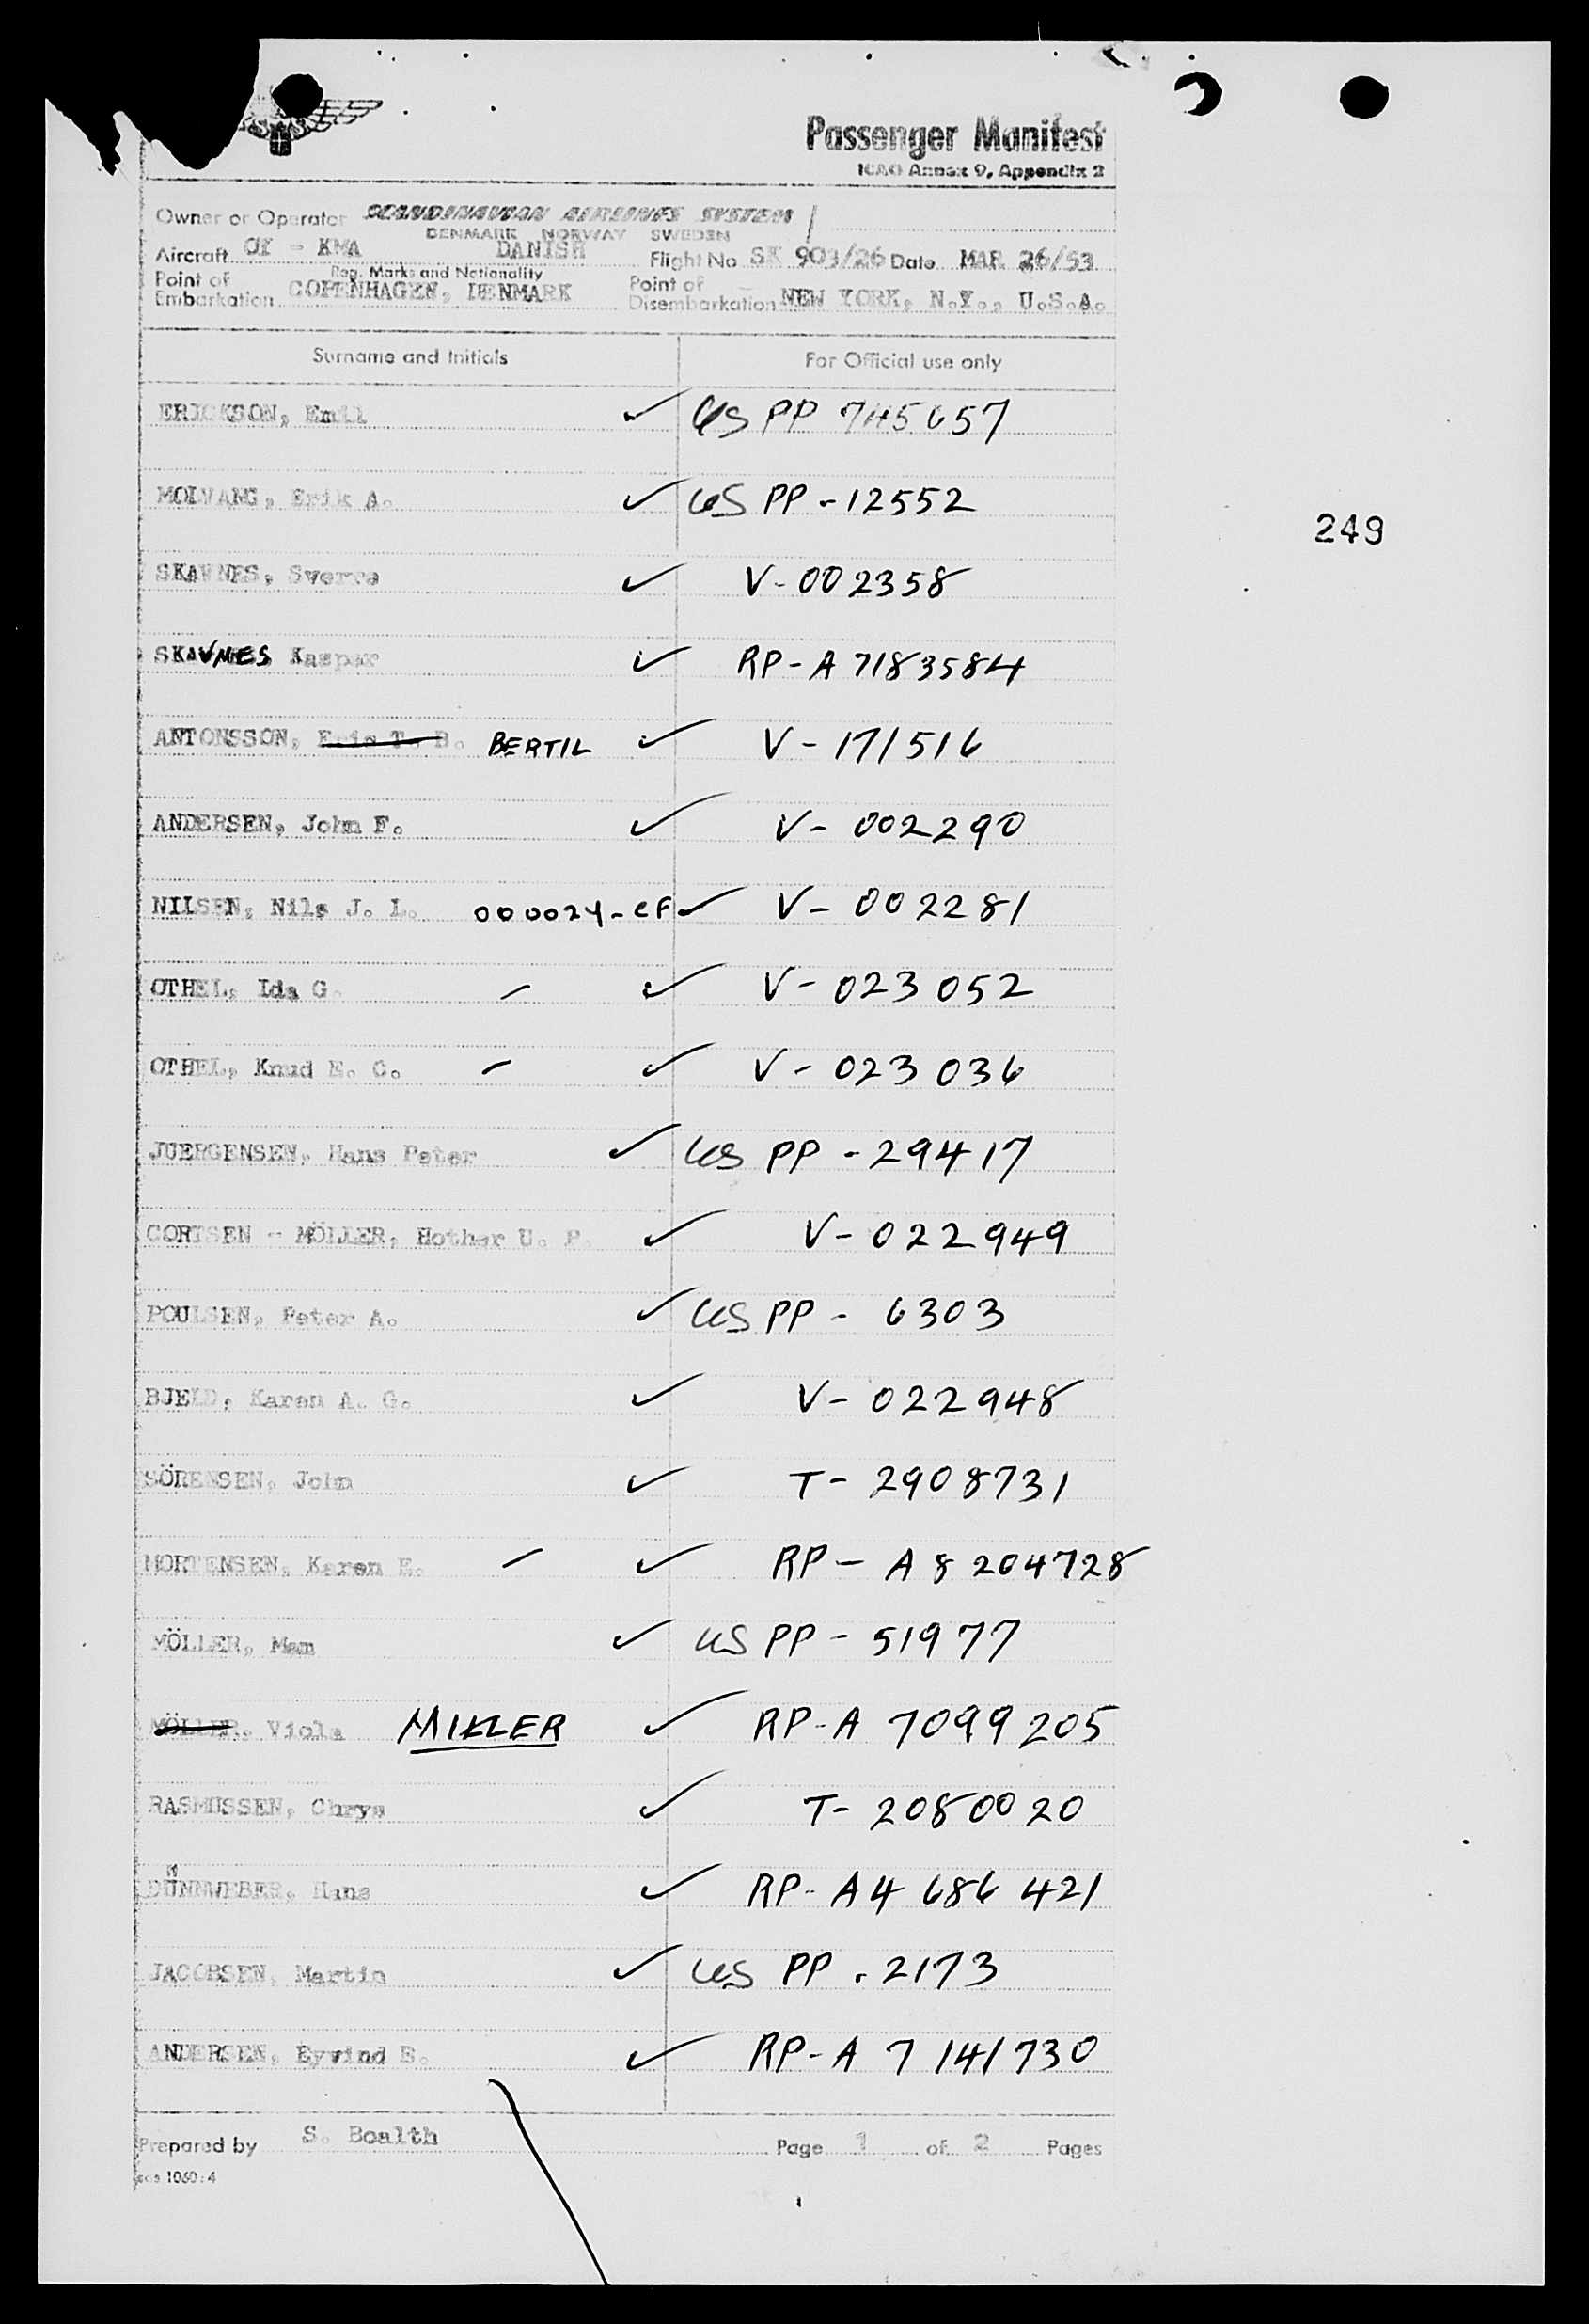 Passenger Manifest
ICAO Annex 9, Appendix 2
Owner or Operator SCANDINAVIAN AIRLINES SYSTEM
DENMARK NORWAY SWEDEN
Aircraft OY - KMA DANISH Flight No SK 903/26 Date MAR 26/53
Reg. Marks and Nationality
Point of Embarkation COPENHAGEN, DENMARK Point of Disembarkation NEW YORK, N.Y., U.S.A.
Surname and Initials For Official use only
ERICKSON, Emil ✓ US PP 745657
MOLVANG, Erik A. ✓ US PP - 12552
249
SKAVNES, Sverre ✓ V - 002358
SKAVNES, Kaspar ✓ RP - A 7183584
ANTONSSON, Eric T. B. BERTIL ✓ V - 171516
ANDERSEN, John F. ✓ V - 002290
NILSEN, Nils J. L. 000024 - CF ✓ V - 002281
OTHEL, Ida G. - ✓ V - 023052
OTHEL, Knud E. C. - ✓ V - 023036
JUERGENSEN, Hans Peter ✓ US PP - 29417
CORTSEN - MÖLLER, Hother U. P. ✓ V - 022949
POULSEN, Peter A. ✓ US PP - 6303
BJELD, Karen A. G. ✓ V - 022948
SÖRENSEN, John ✓ T - 2908731
MORTENSEN, Karen E. - ✓ RP - A 8204728
MÖLLER, Mam ✓ US PP - 51977
MÖLLER, Viola MIKLER ✓ RP - A 7099205
RASMUSSEN, Chrys ✓ T - 2080020
DÜNNWEBER, Hans ✓ RP - A4 686 421
JACOBSEN, Martin ✓ US PP . 2173
ANDERSEN, Eyvind B. ✓ RP - A 7 141730
Prepared by S. Boalth Page 1 of 2 Pages
sas 1060:4